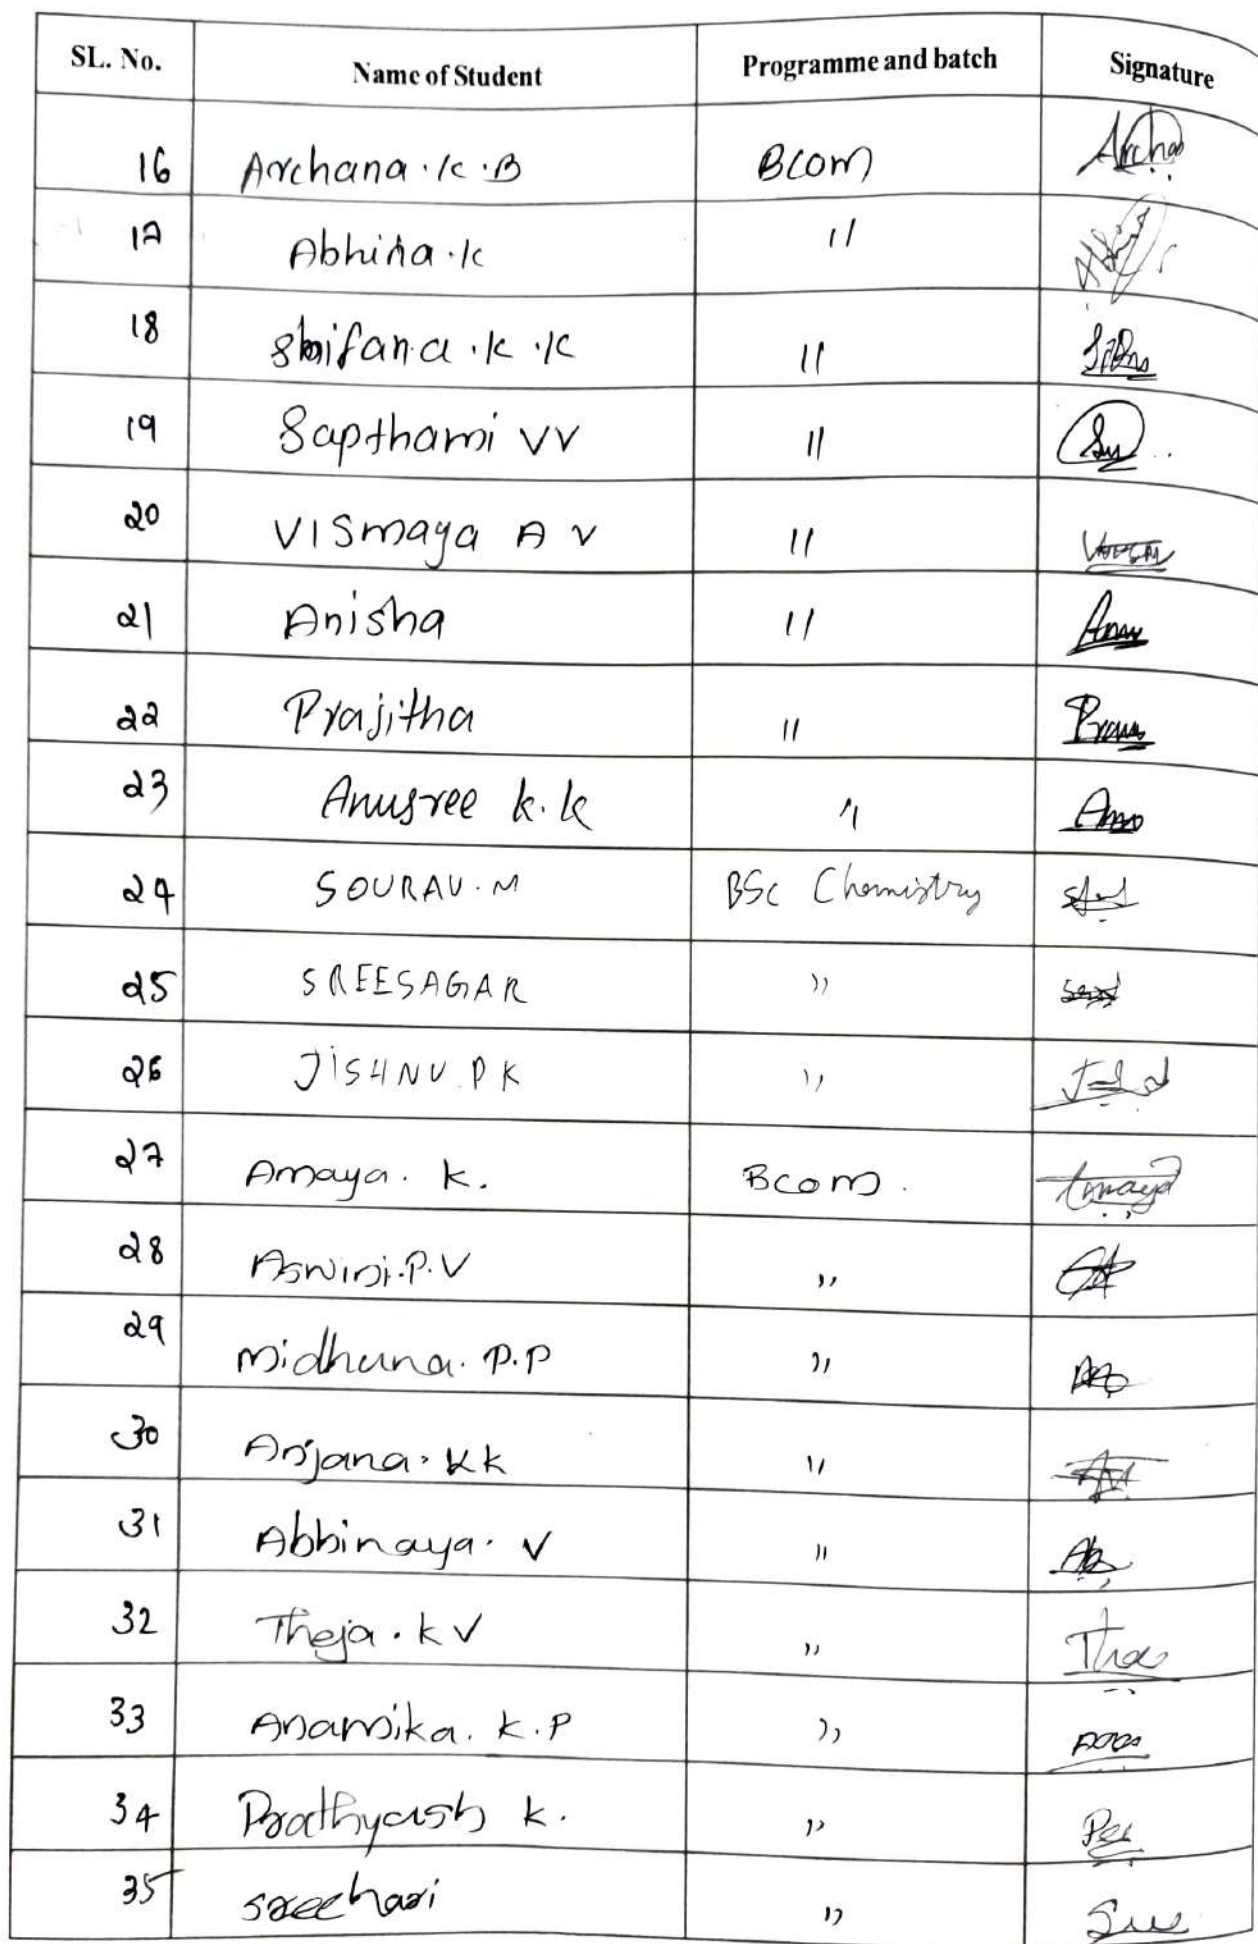 SL. No. Name of Student Programme and batch Signature
16 Archana.K.B BCom Archa
17 Abhina.K "
18 Shifana.K.K "
19 Sapthami VV "
20 VISmaya A V "
21 Anisha "
22 Prajitha "
23 Anusree K.K "
24 SOURAV.M BSc Chemistry
25 SREESAGAR "
26 JISHNU.PK "
27 Amaya. K. Bcom. Amaya
28 Aswini.P.V "
29 Midhuna. P.P "
30 Anjana. KK "
31 Abhinaya. V "
32 Theja. KV "
33 Anamika. K.P "
34 Prathyush K. "
35 Sreehari "